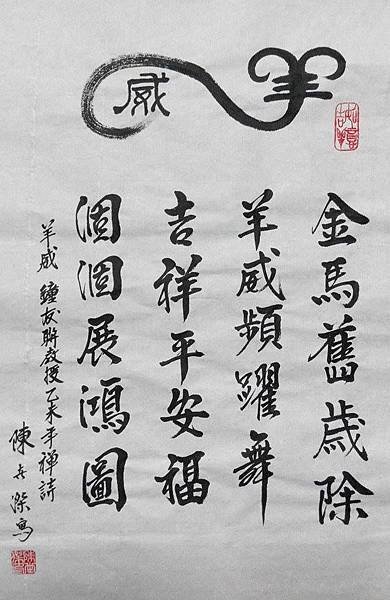 羊威
金馬舊歲除
羊威頻躍舞
吉祥平安福
個個展鴻圖
羊威 鐘友聯教授乙未年禪詩
陳世傑寫